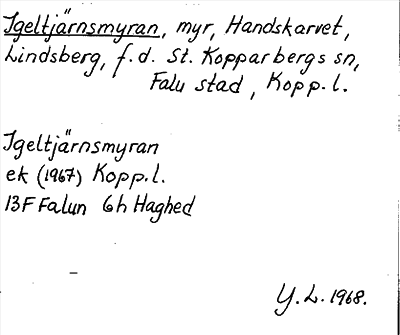 Igeltjärnsmyran, myr, Handskarvet,
Lindsberg, f.d. St. Kopparbergs sn,
Falu stad, Kopp.l.
Igeltjärnsmyran
ek (1967) Kopp.l.
13F Falun 6h Haghed
Y.L. 1968.